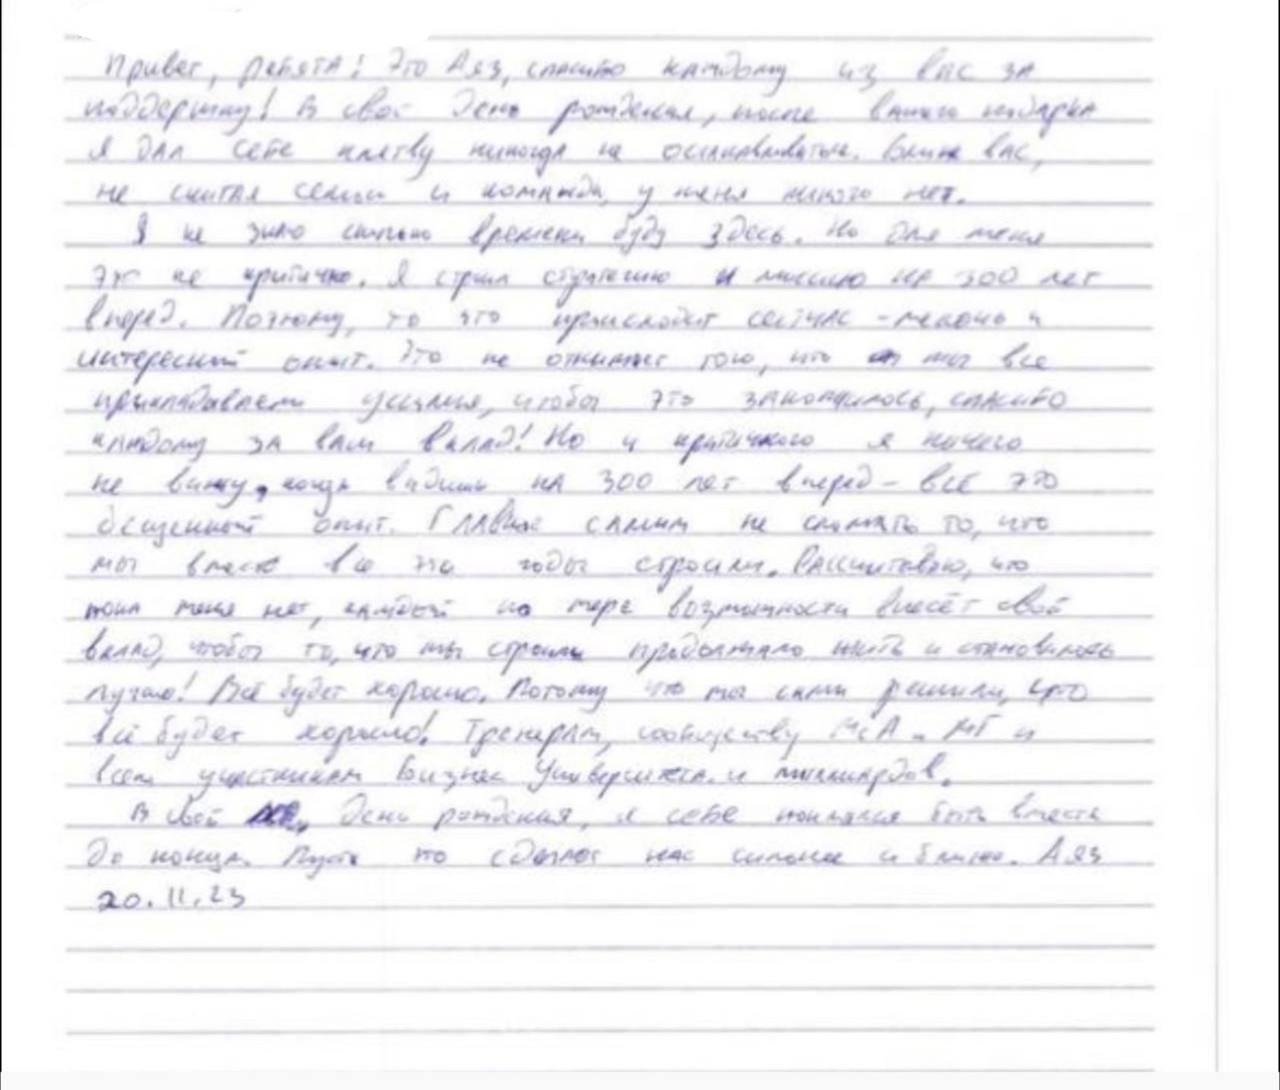 Привет, ребята! Это Аяз, спасибо каждому из вас за
поддержку! В свой день рождения, после вашего подарка
я дал себе клятву никогда не останавливаться. Ближе вас,
не считая семьи и команды, у меня никого нет.
Я не знаю сколько времени буду здесь. Но для меня
это не критично. Я строил стратегию и миссию на 300 лет
вперед. Поэтому, то что происходит сейчас - мелочь и
интересный опыт. Это не отнимает того, что мы все
прикладываем усилия, чтобы это закончилось, спасибо
каждому за ваш вклад! Но и критичного я ничего
не вижу, когда видишь на 300 лет вперед - всё это
бесценный опыт. Главное самим не сломать то, что
мы вместе все эти годы строили. Рассчитываю, что
пока меня нет, каждый по мере возможности внесёт свой
вклад, чтобы то, что мы строили продолжало жить и становилось
лучше! Всё будет хорошо. Потому что мы сами решили, что
всё будет хорошо! Тренерам, сообществу МсА и МГ и
всем участникам Бизнес Университета и миллиардов.
В свой день рождения, я себе поклялся быть вместе
до конца. Пусть это сделает нас сильнее и ближе. Аяз
20.11.23